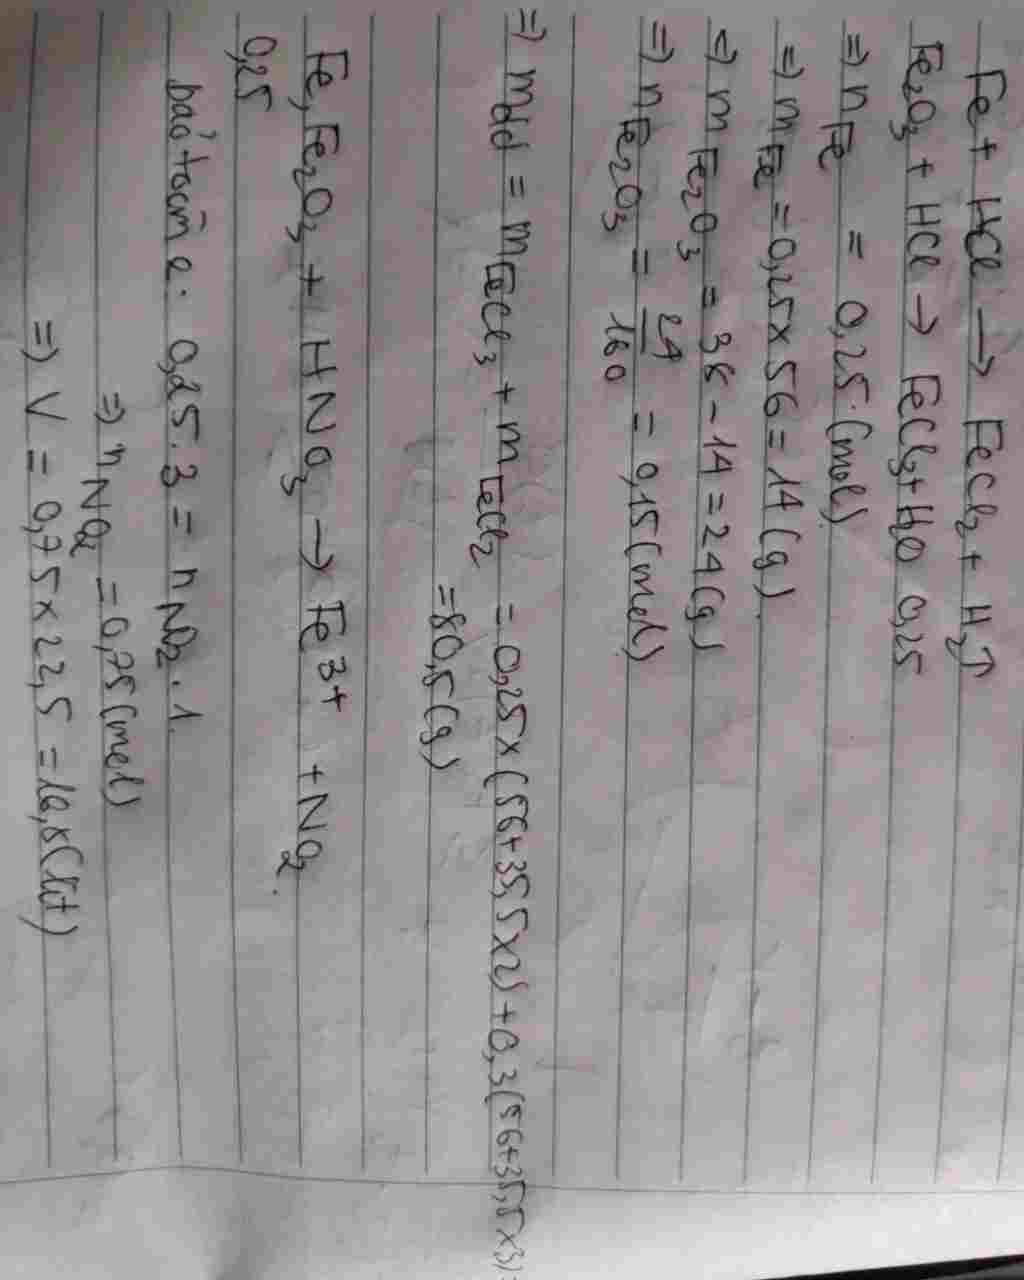 Fe + HCl → FeCl₂ + H₂↑
Fe₂O₃ + HCl → FeCl₃ + H₂O 0,25
⇒ nFe = 0,25 (mol)
⇒ mFe = 0,25 x 56 = 14 (g)
⇒ mFe₂O₃ = 38 - 14 = 24 (g)
⇒ nFe₂O₃ = 24/160 = 0,15 (mol)
⇒ mdd = mFeCl₃ + mFeCl₂ = 0,25 x (56 + 35,5 x 2) + 0,3 (56 + 35,5 x 3) =
= 80,5 (g)
Fe, Fe₂O₃ + HNO₃ → Fe³⁺ + NO₂.
0,25
bảo toàn e. 0,25.3 = nNO₂.1
⇒ nNO₂ = 0,75 (mol)
⇒ V = 0,75 x 22,5 = 16,8 (lít)